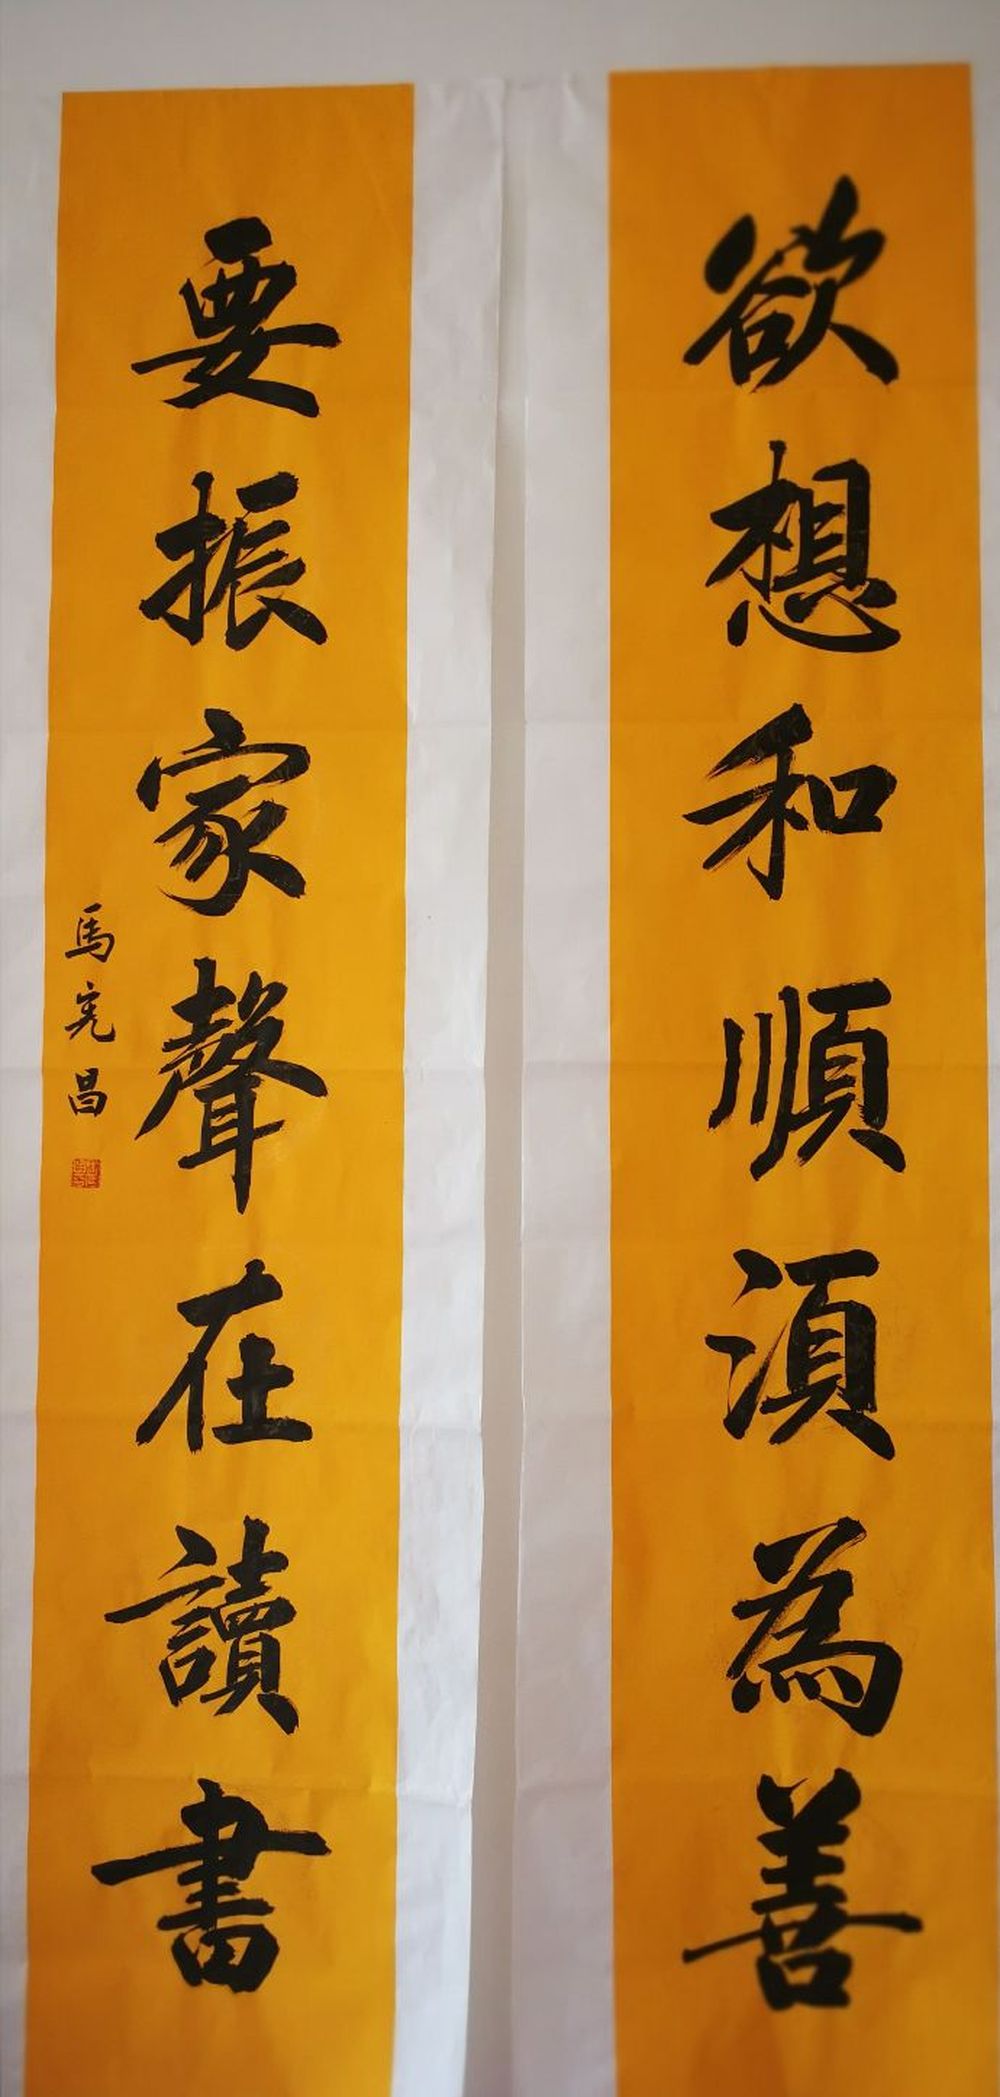 欲想和順須為善
要振家聲在讀書
馬亮昌